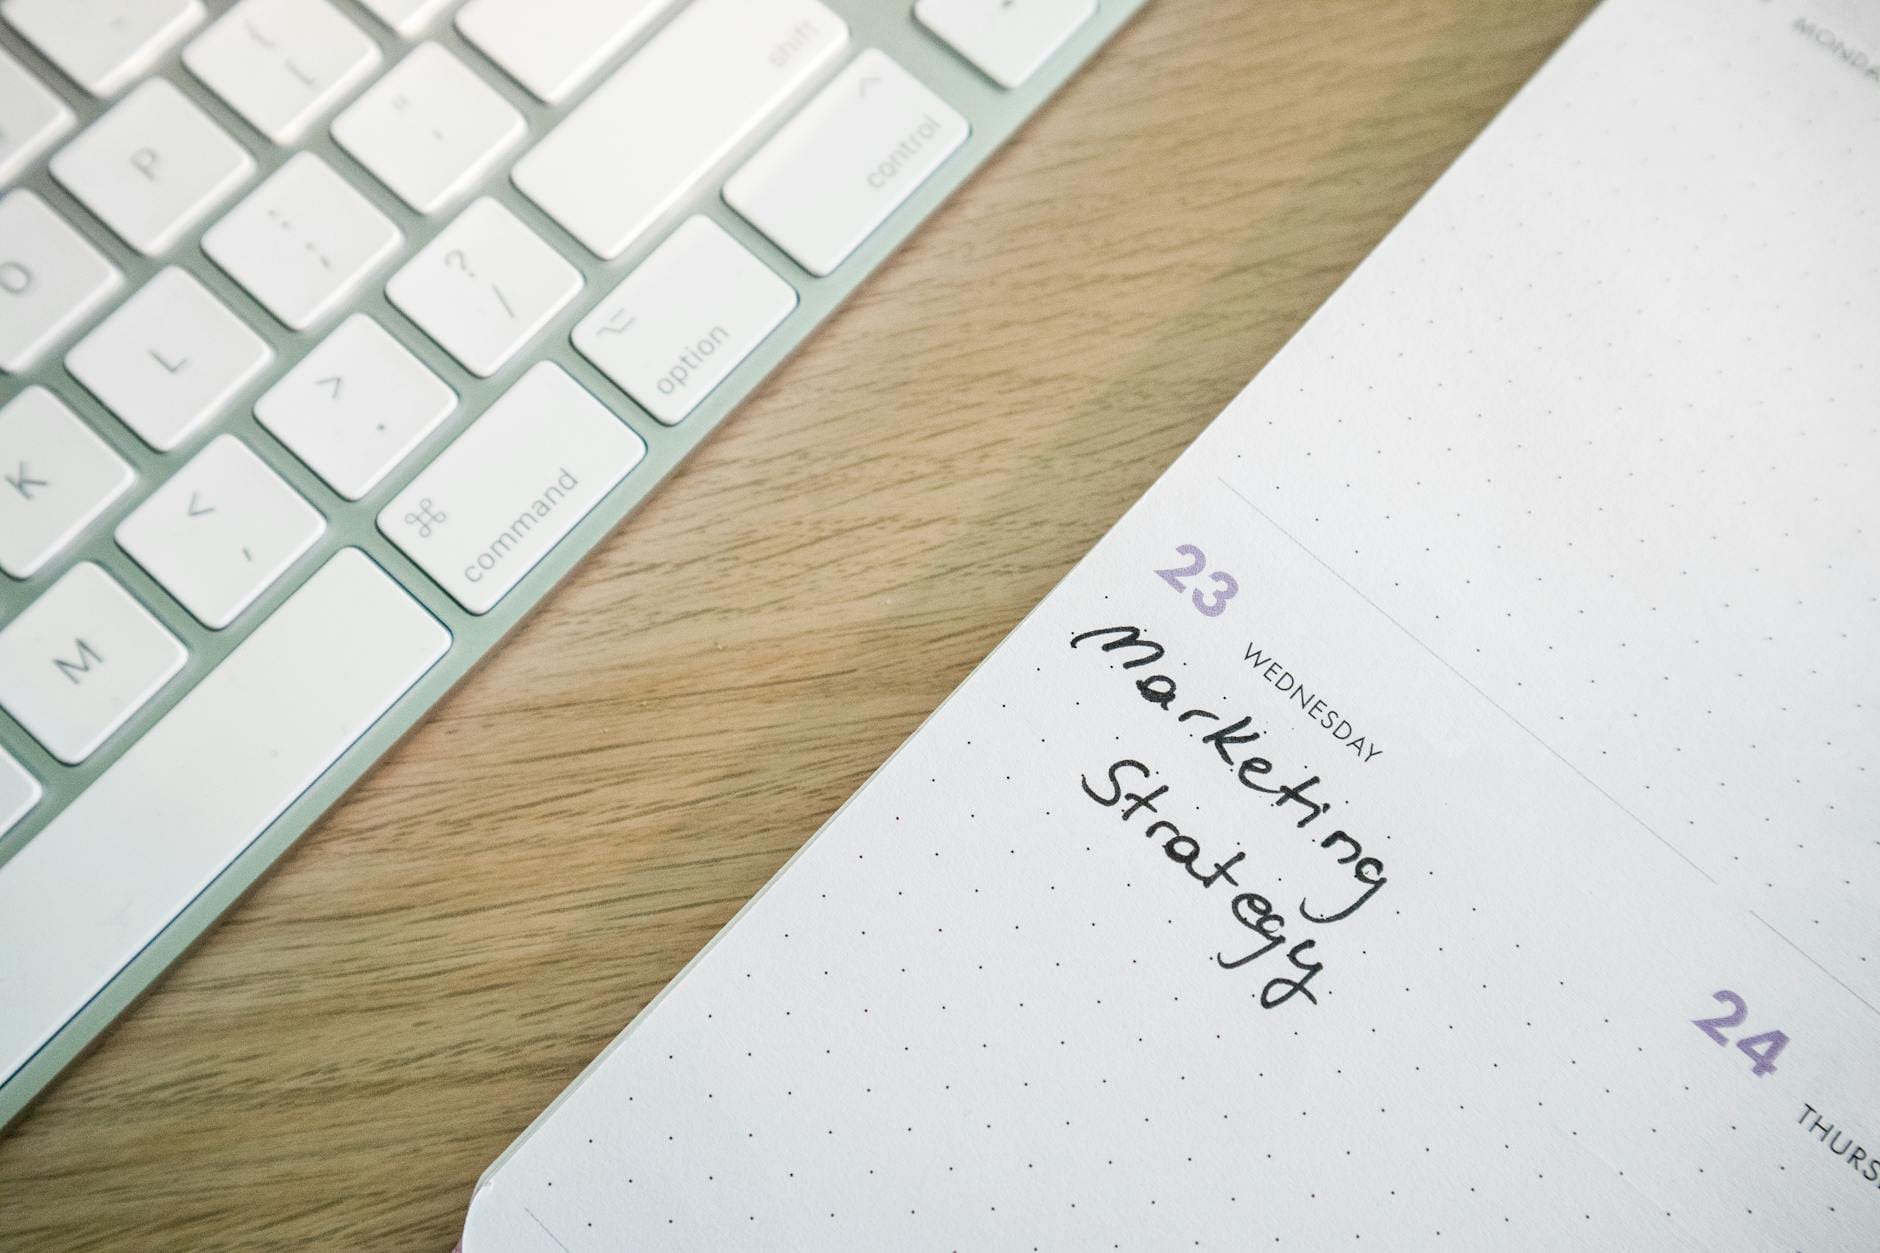 shift
^
control
P
" '
: ;
? /
option
O
L
> .
⌘
command
K
< ,
M
MONDA
23
WEDNESDAY
Marketing
Strategy
24
THURS